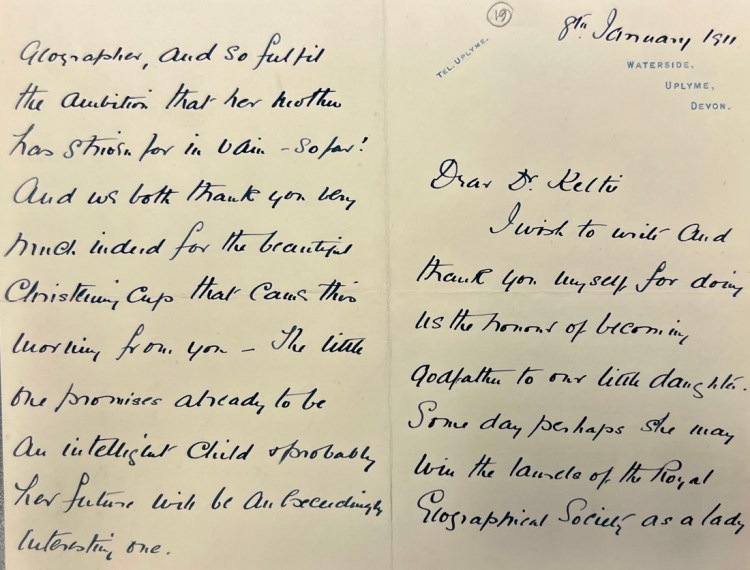 19
8th January 1911
TEL. UPLYME.
WATERSIDE,
UPLYME,
DEVON.
Dear Dr. Keltie
I wish to write and
thank you myself for doing
us the honour of becoming
godfather to our little daughter.
Some day perhaps she may
win the laurels of the Royal
Geographical Society as a lady
Geographer, and so fulfil
the ambition that her mother
has striven for in vain - so far!
And we both thank you very
much indeed for the beautiful
Christening Cup that came this
morning from you - The little
one promises already to be
an intelligent child & probably
her future will be an exceedingly
interesting one.